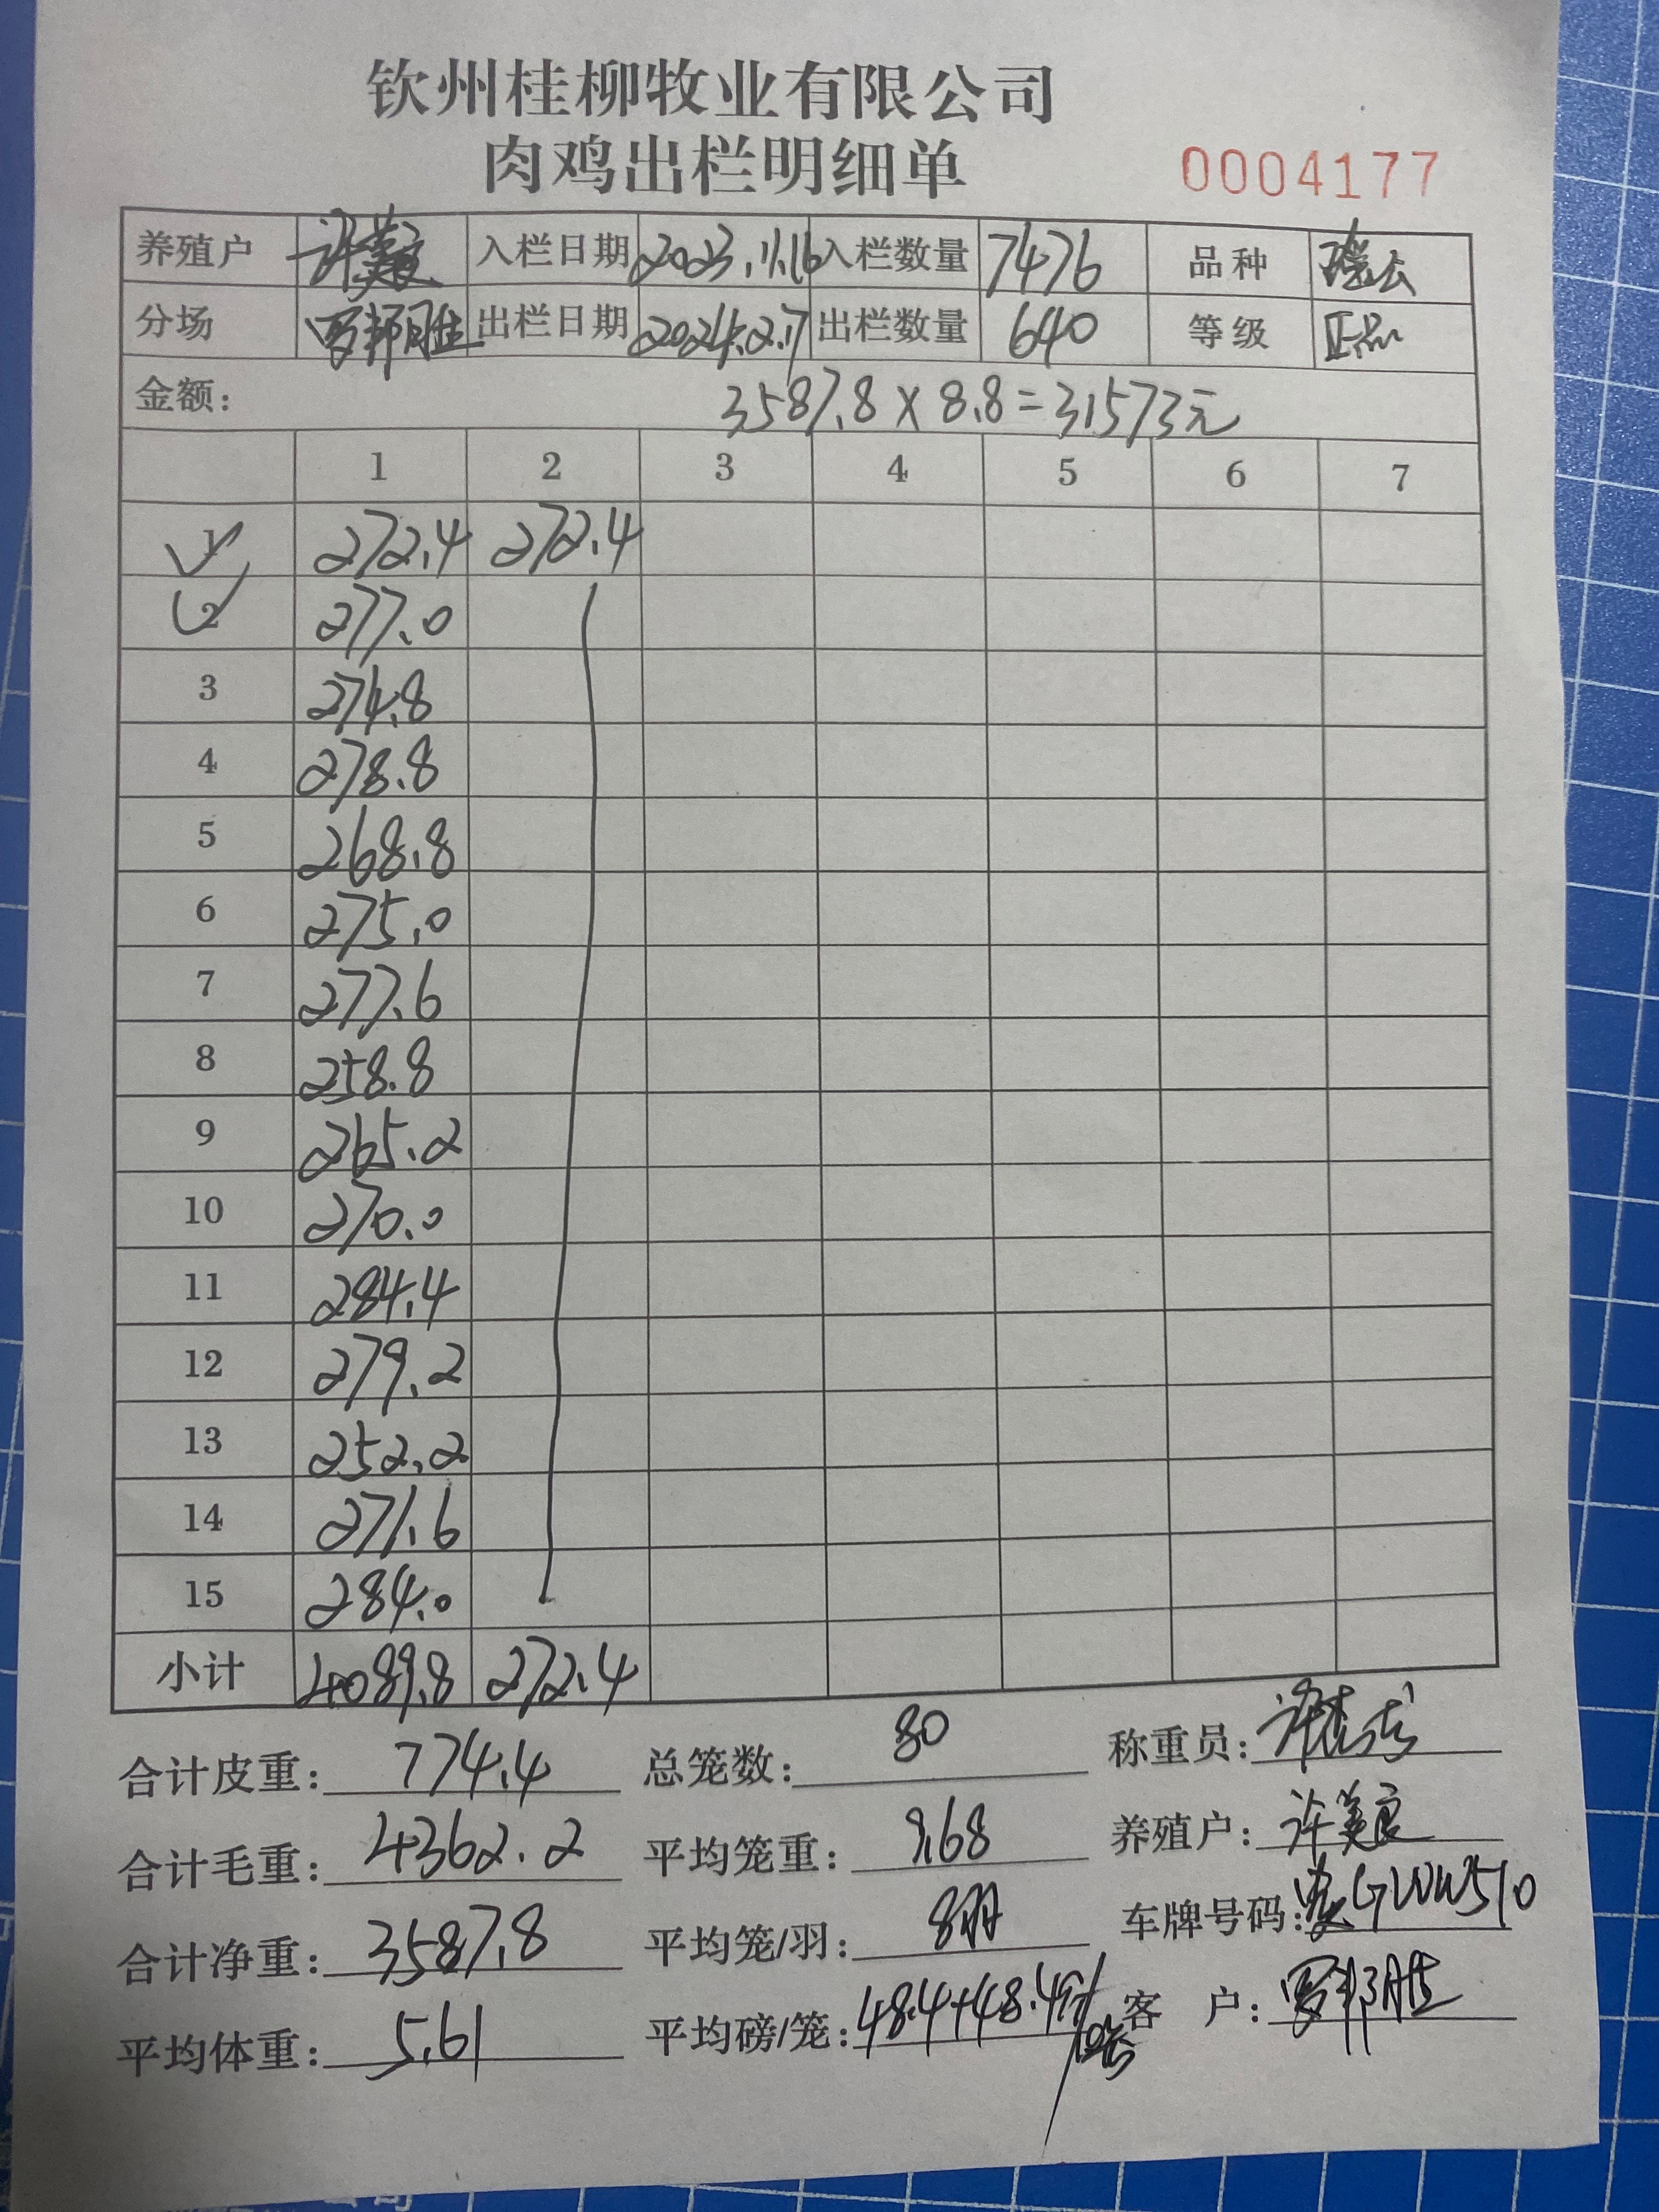 钦州桂柳牧业有限公司
肉鸡出栏明细单 0004177
养殖户 许美良 入栏日期 2023.11.16 入栏数量 7476 品种
分场 罗邦胜 出栏日期 2024.2.17 出栏数量 640 等级 正品
金额: 3587.8 x 8.8 = 31573元
1 2 3 4 5 6 7
1 272.4 272.4
2 277.0
3 274.8
4 278.8
5 268.8
6 275.0
7 277.6
8 258.8
9 265.2
10 270.0
11 284.4
12 279.2
13 252.2
14 271.6
15 284.0
小计 4089.8 272.4
合计皮重: 774.4 总笼数: 80 称重员:
合计毛重: 4362.2 平均笼重: 9.68 养殖户: 许美良
合计净重: 3587.8 平均笼/羽: 8羽 车牌号码:
平均体重: 5.61 平均磅/笼: 48.4+48.4 客 户: 罗邦胜